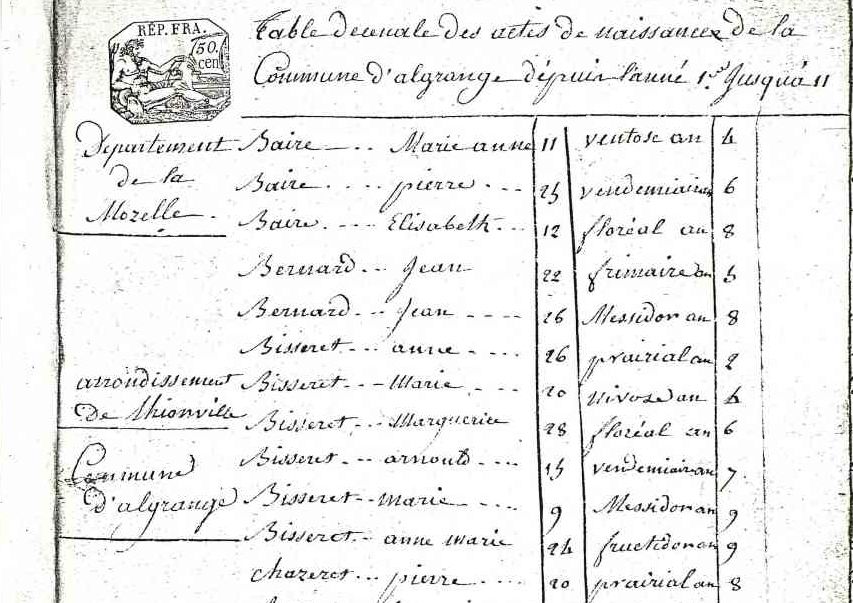 RÉP. FRA.
150.
cen
Table decenale des actes de naissances de la
Commune d'algrange dépuis l'anné 1.er Jusquà 11
Département
de la
Mozelle.
arrondissement
De thionville
Commune
d'algrange
Baire Marie anne 11 ventose an 4
Baire pierre 25 vendemiaire an 6
Baire Elisabeth 12 floréal an 8
Bernard Jean 22 frimaire an 5
Bernard Jean 26 Messidor an 8
Bisseret anne 26 prairial an 2
Bisseret Marie 20 nivose an 4
Bisseret Marguerite 28 floréal an 6
Bisseret arnould 15 vendemiaire an 7
Bisseret marie 9 Messidor an 9
Bisseret anne marie 24 fructidor an 9
chazeret pierre 20 prairial an 8